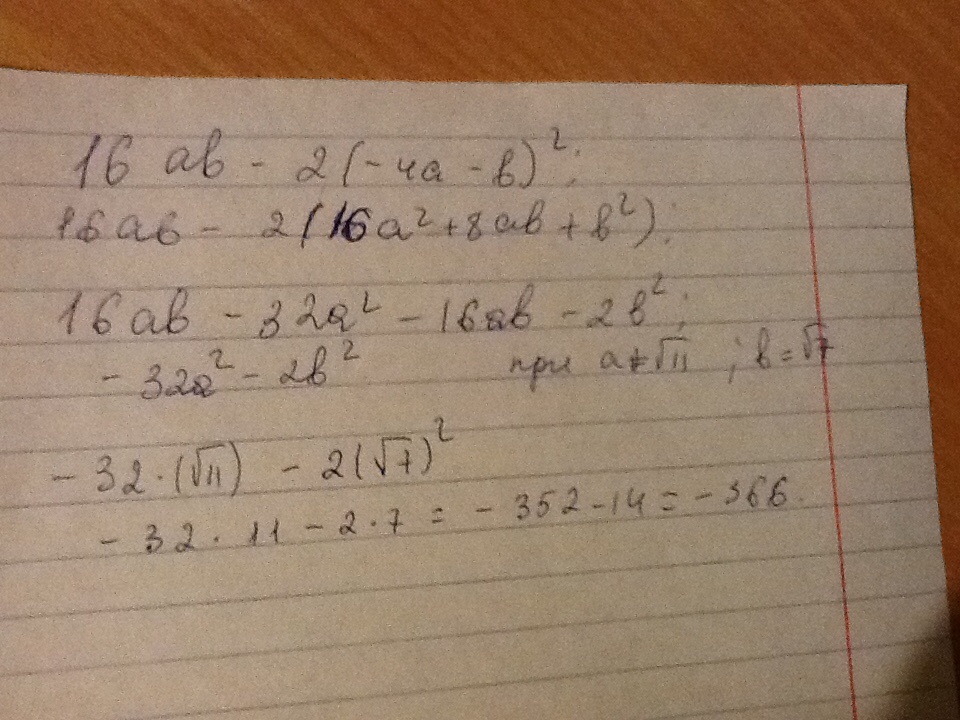 16 ab - 2(-4a - b)²;
16ab - 2(16a² + 8ab + b²);
16ab - 32a² - 16ab - 2b²;
- 32a² - 2b² при a = √11 ; b = √7
- 32·(√11) - 2(√7)²
- 32 · 11 - 2 · 7 = - 352 - 14 = - 366.